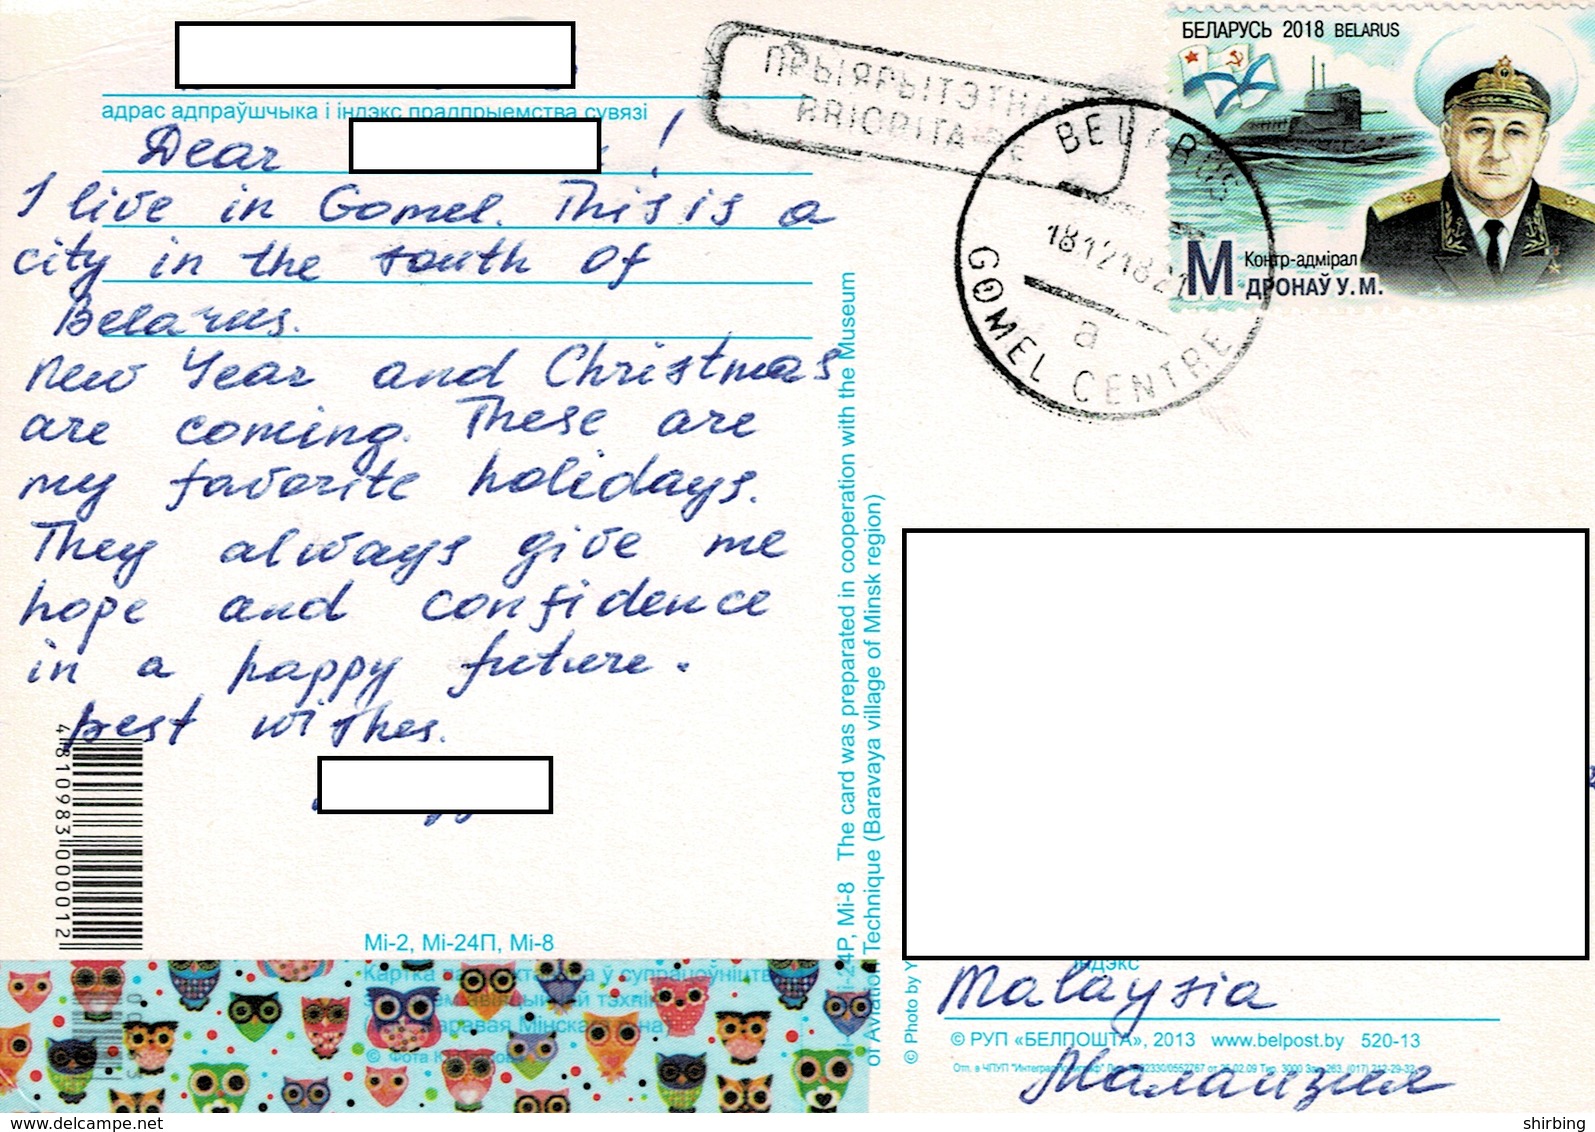 адрас адпраўшчыка і індэкс прадпрыемства сувязі
Dear !
I live in Gomel. This is a
city in the south of
Belarus.
New Year and Christmas
are coming. These are
my favorite holidays.
They always give me
hope and confidence
in a happy future.
Best wishes.
4 810983 000012
Mi-2, Mi-24П, Mi-8
The card was preparated in cooperation with the Museum
of Aviation Technique (Baravaya village of Minsk region)
ПРЫЯРЫТЭТНА
PRIORITA RE
BELARUS
18 12 18 21
a
GOMEL CENTRE
БЕЛАРУСЬ 2018 BELARUS
M Контр-адмірал
ДРОНАЎ У.М.
індэкс
Malaysia
© РУП «БЕЛПОШТА», 2013 www.belpost.by 520-13
Малайзия
© Photo by
www.delcampe.net
shirbing